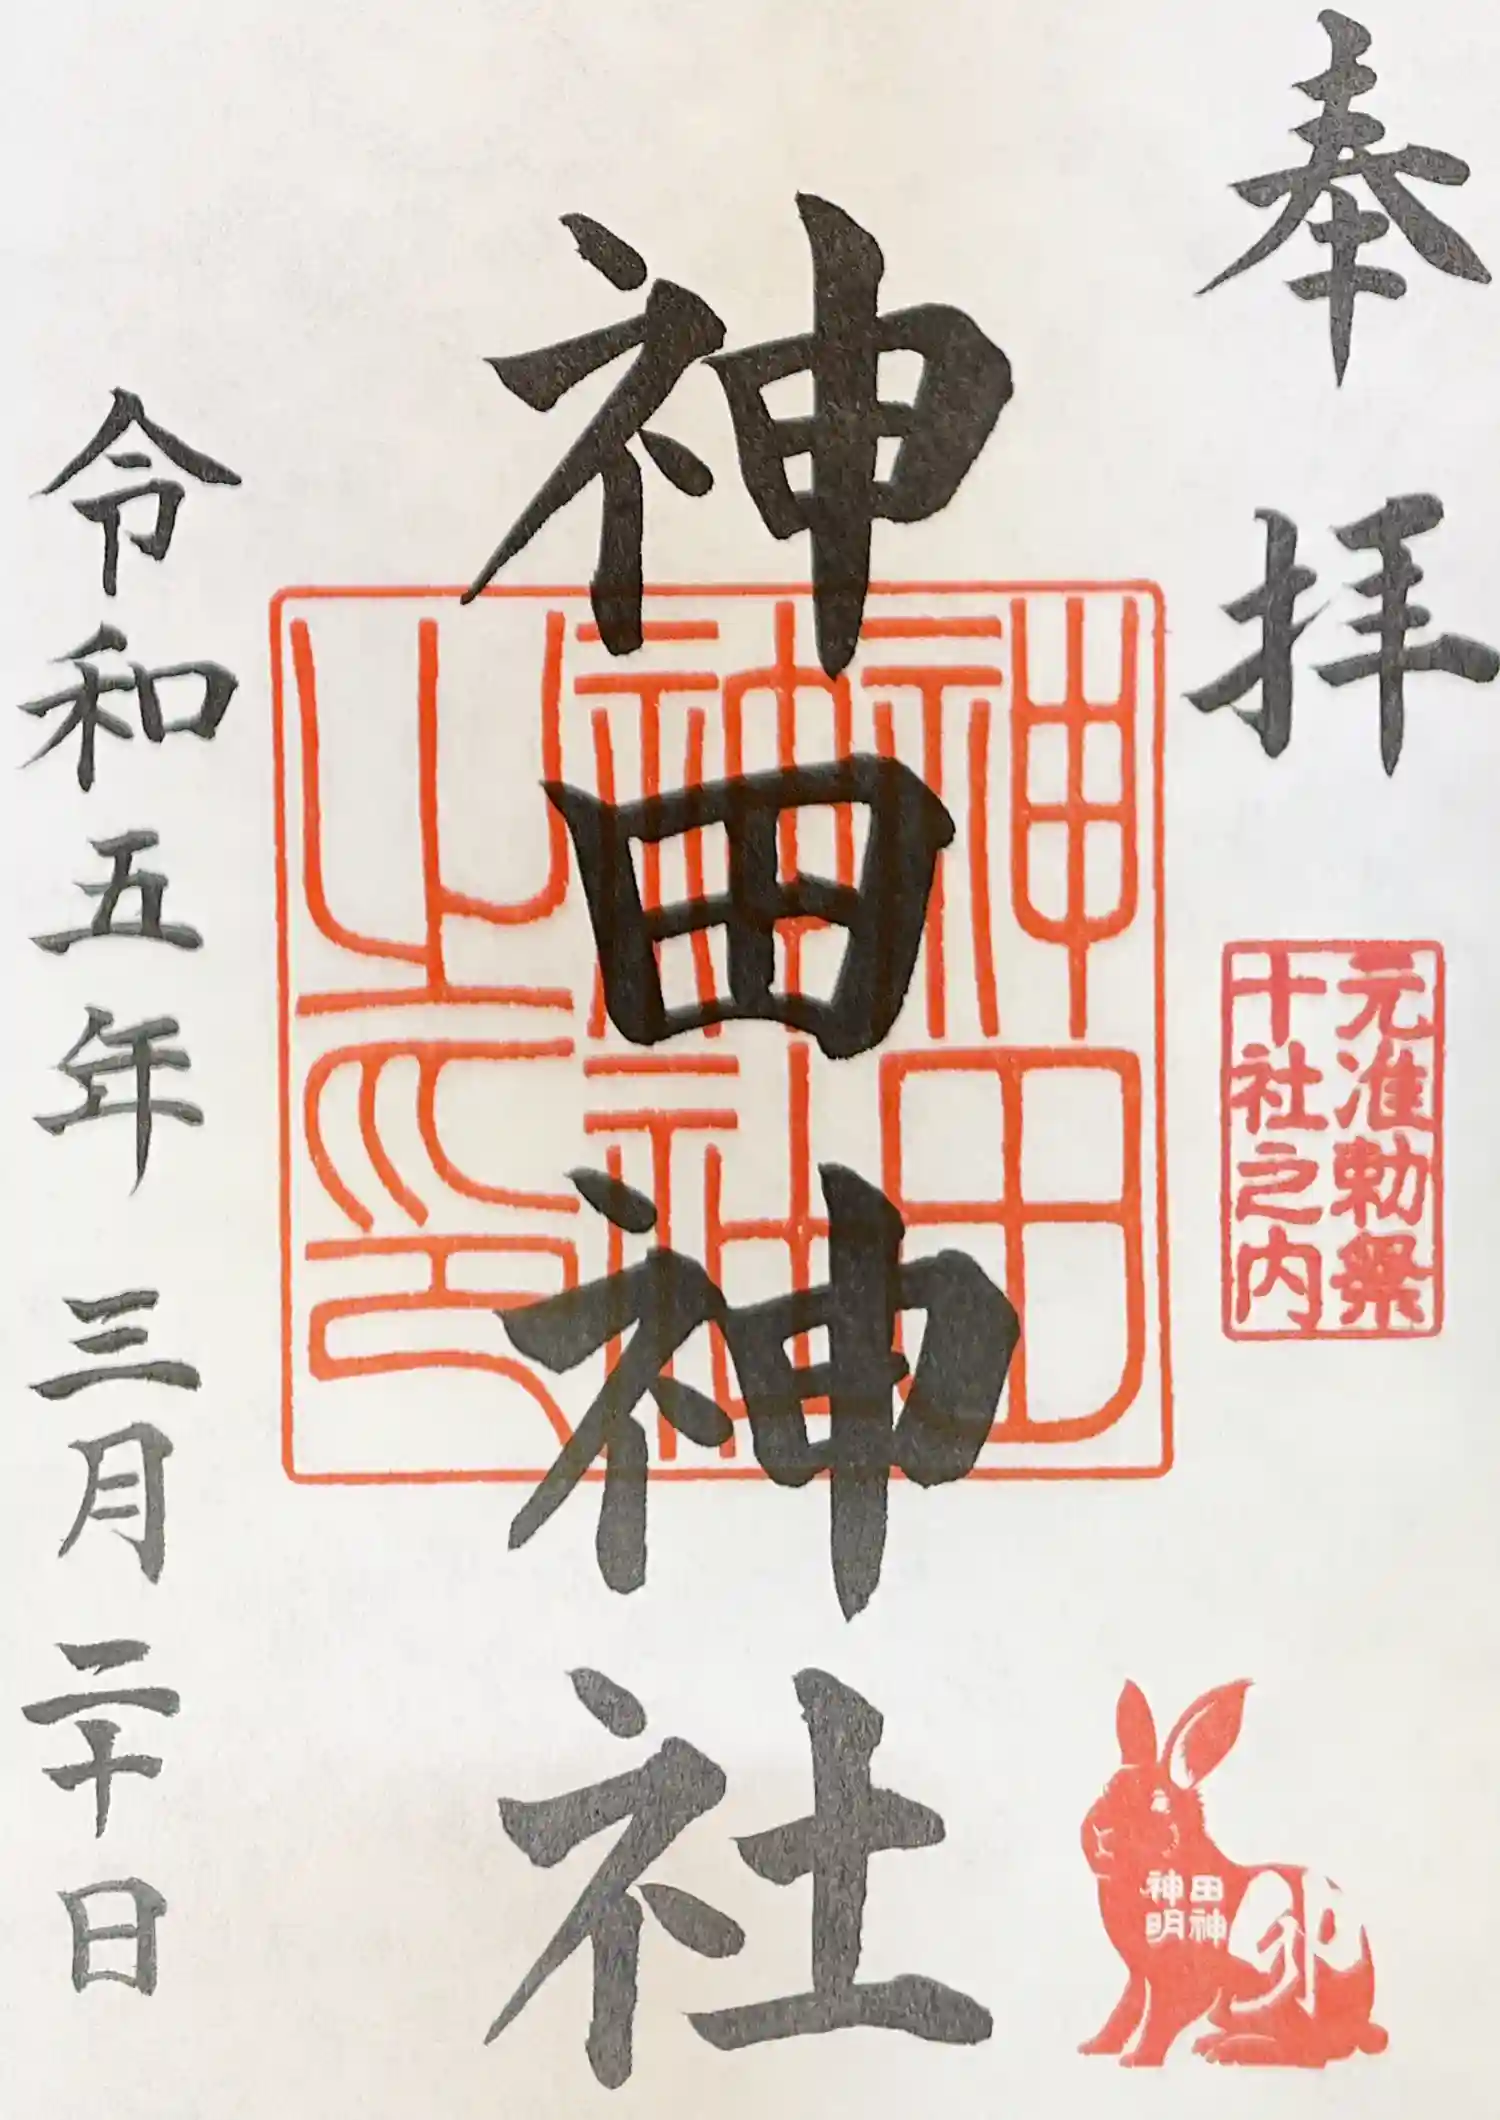 奉拝
元准勅祭
十社之内
神田神社
神田
神社
之印
令和五年 三月 二十日
田神
神明
卯